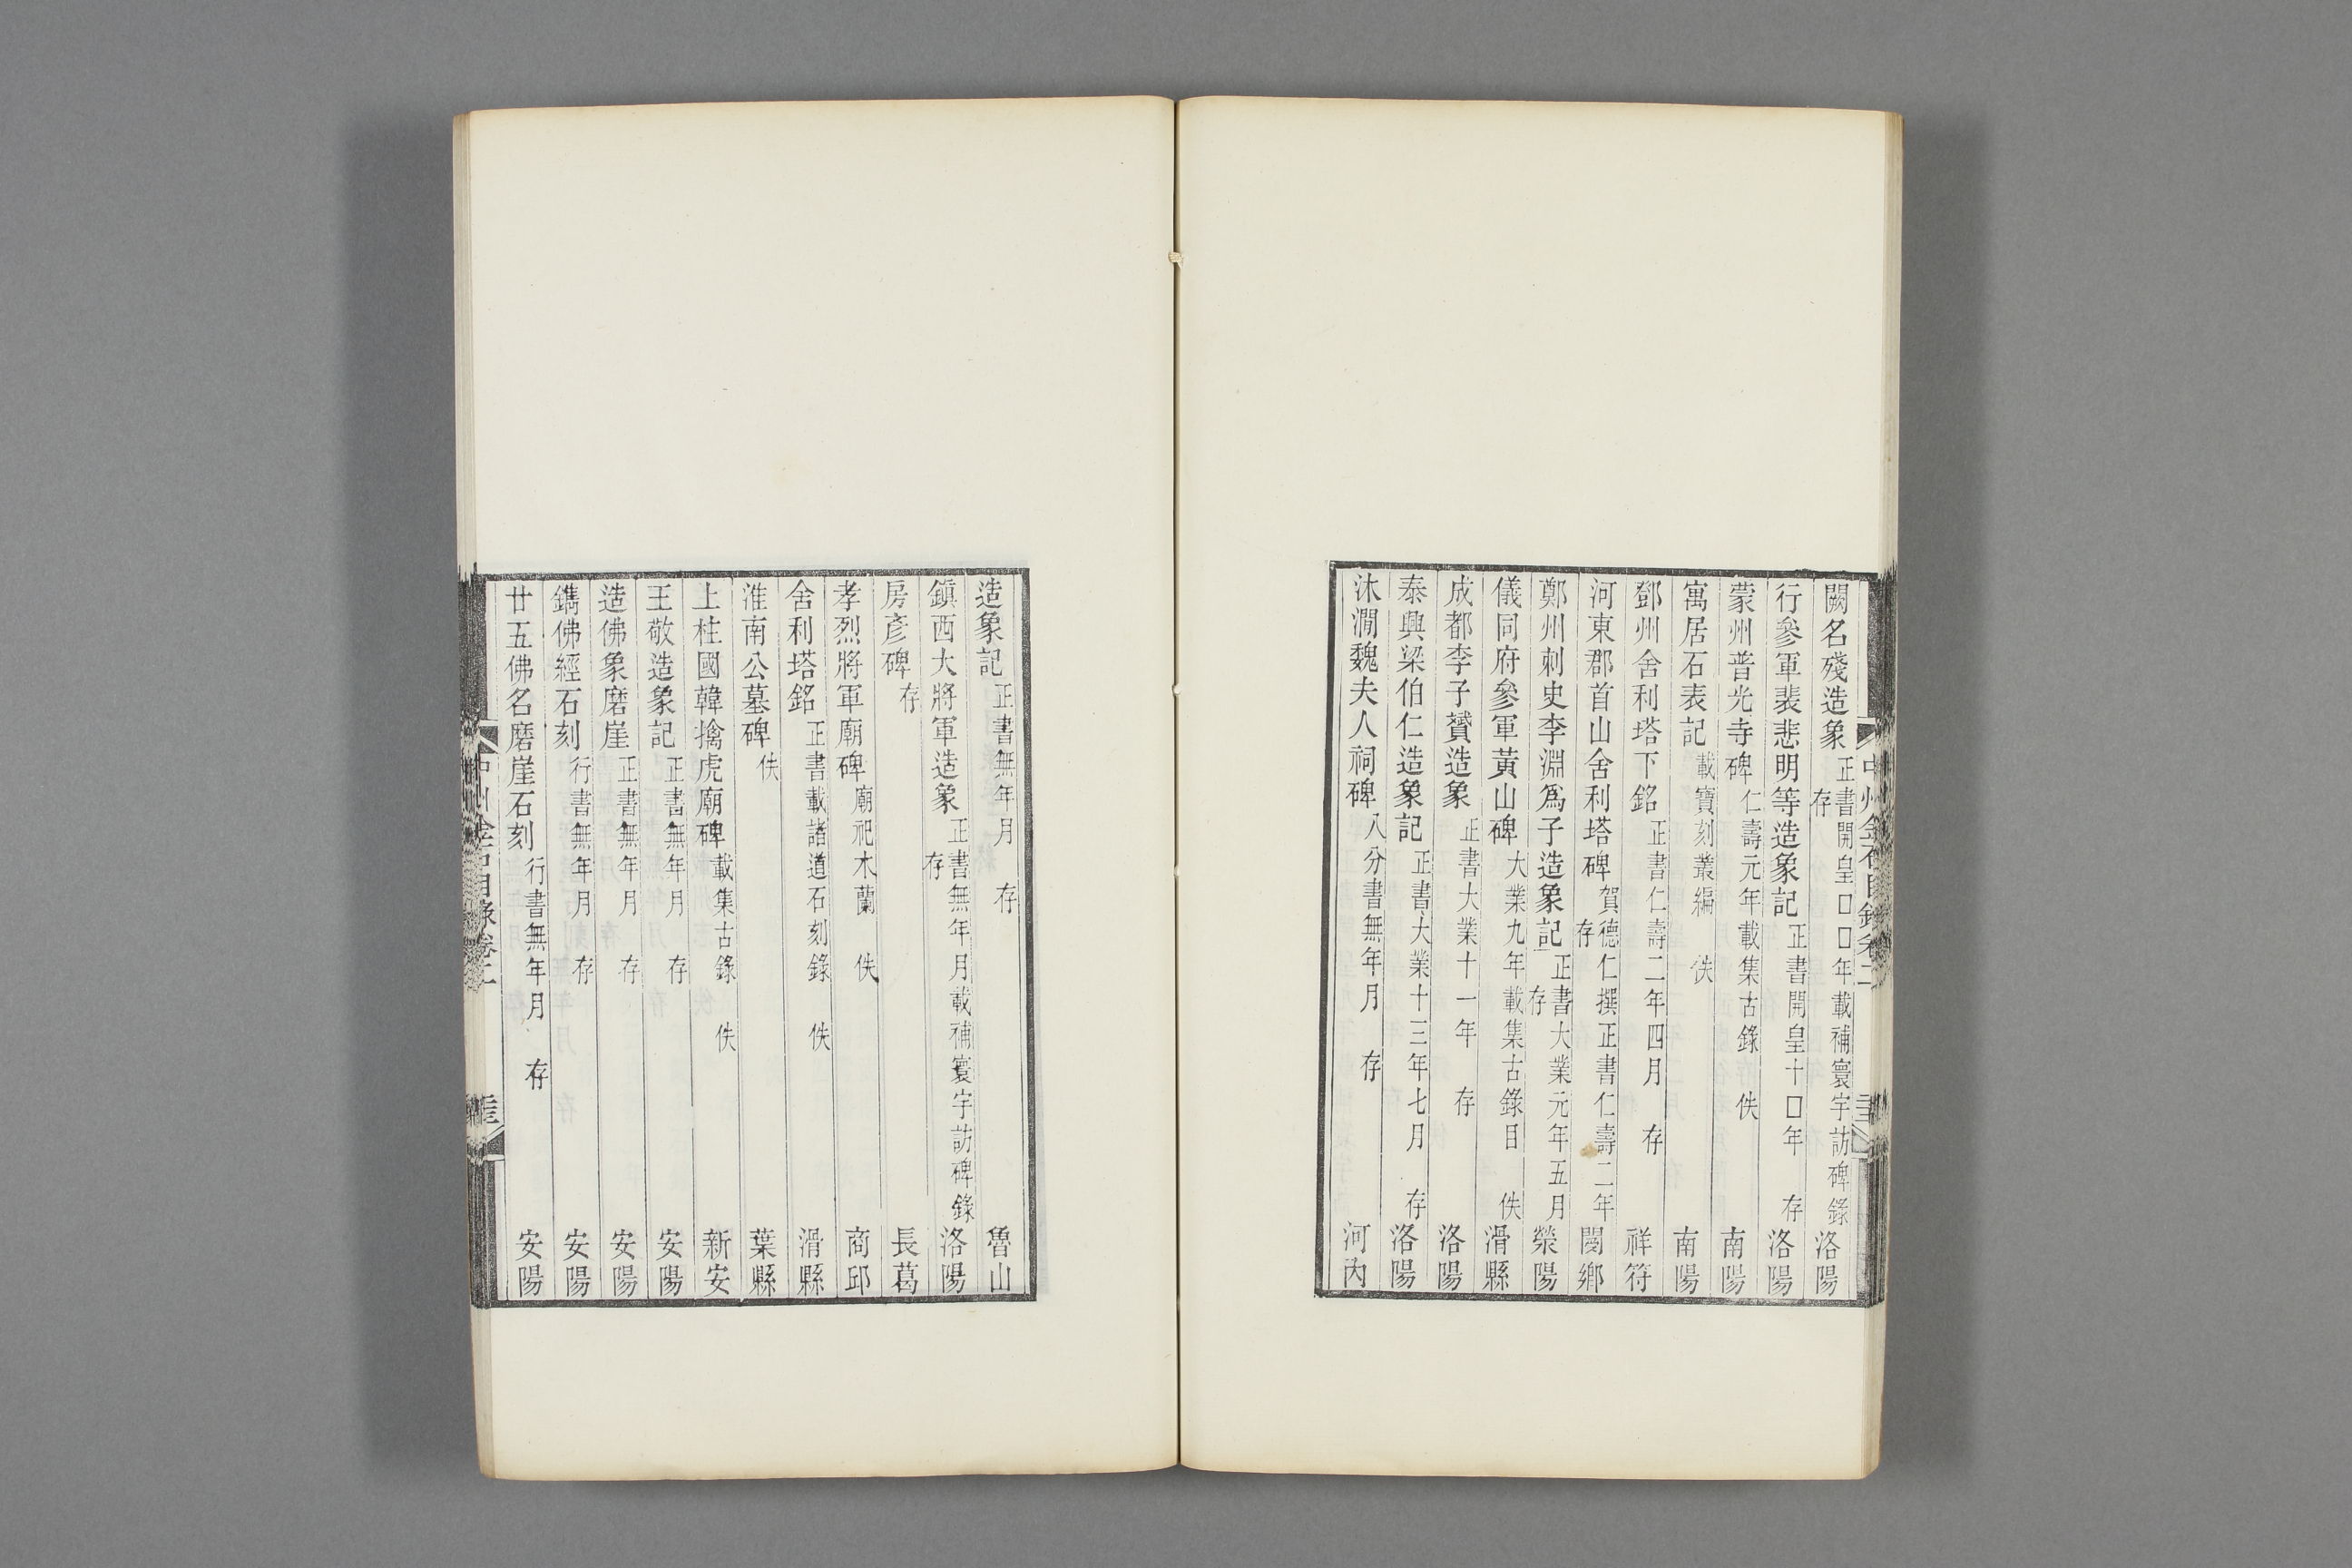 闕名殘造象 正書開皇□□年載補寰宇訪碑錄 存 洛陽
行參軍裴悲明等造象記 正書開皇十□年 存 洛陽
蒙州普光寺碑 仁壽元年載集古錄 佚 南陽
寓居石表記 載寶刻叢編 佚 南陽
鄧州舍利塔下銘 正書仁壽二年四月 存 祥符
河東郡首山舍利塔碑 賀德仁撰正書仁壽二年 存 閿鄉
鄭州刺史李淵爲子造象記 正書大業元年五月 存 滎陽
儀同府參軍黃山碑 大業九年載集古錄目 佚 滑縣
成都李子贇造象 正書大業十一年 存 洛陽
泰興梁伯仁造象記 正書大業十三年七月 存 洛陽
沐澗魏夫人祠碑 八分書無年月 存 河內
中州金石目錄卷二
造象記 正書無年月 存 魯山
鎮西大將軍造象 正書無年月載補寰宇訪碑錄 存 洛陽
房彥碑 存 長葛
孝烈將軍廟碑 廟祀木蘭 佚 商邱
舍利塔銘 正書載諸道石刻錄 佚 滑縣
淮南公墓碑 佚 葉縣
上柱國韓擒虎廟碑 載集古錄 佚 新安
王敬造象記 正書無年月 存 安陽
造佛象磨崖 正書無年月 存 安陽
鐫佛經石刻 行書無年月 存 安陽
廿五佛名磨崖石刻 行書無年月 存 安陽
中州金石目錄卷二